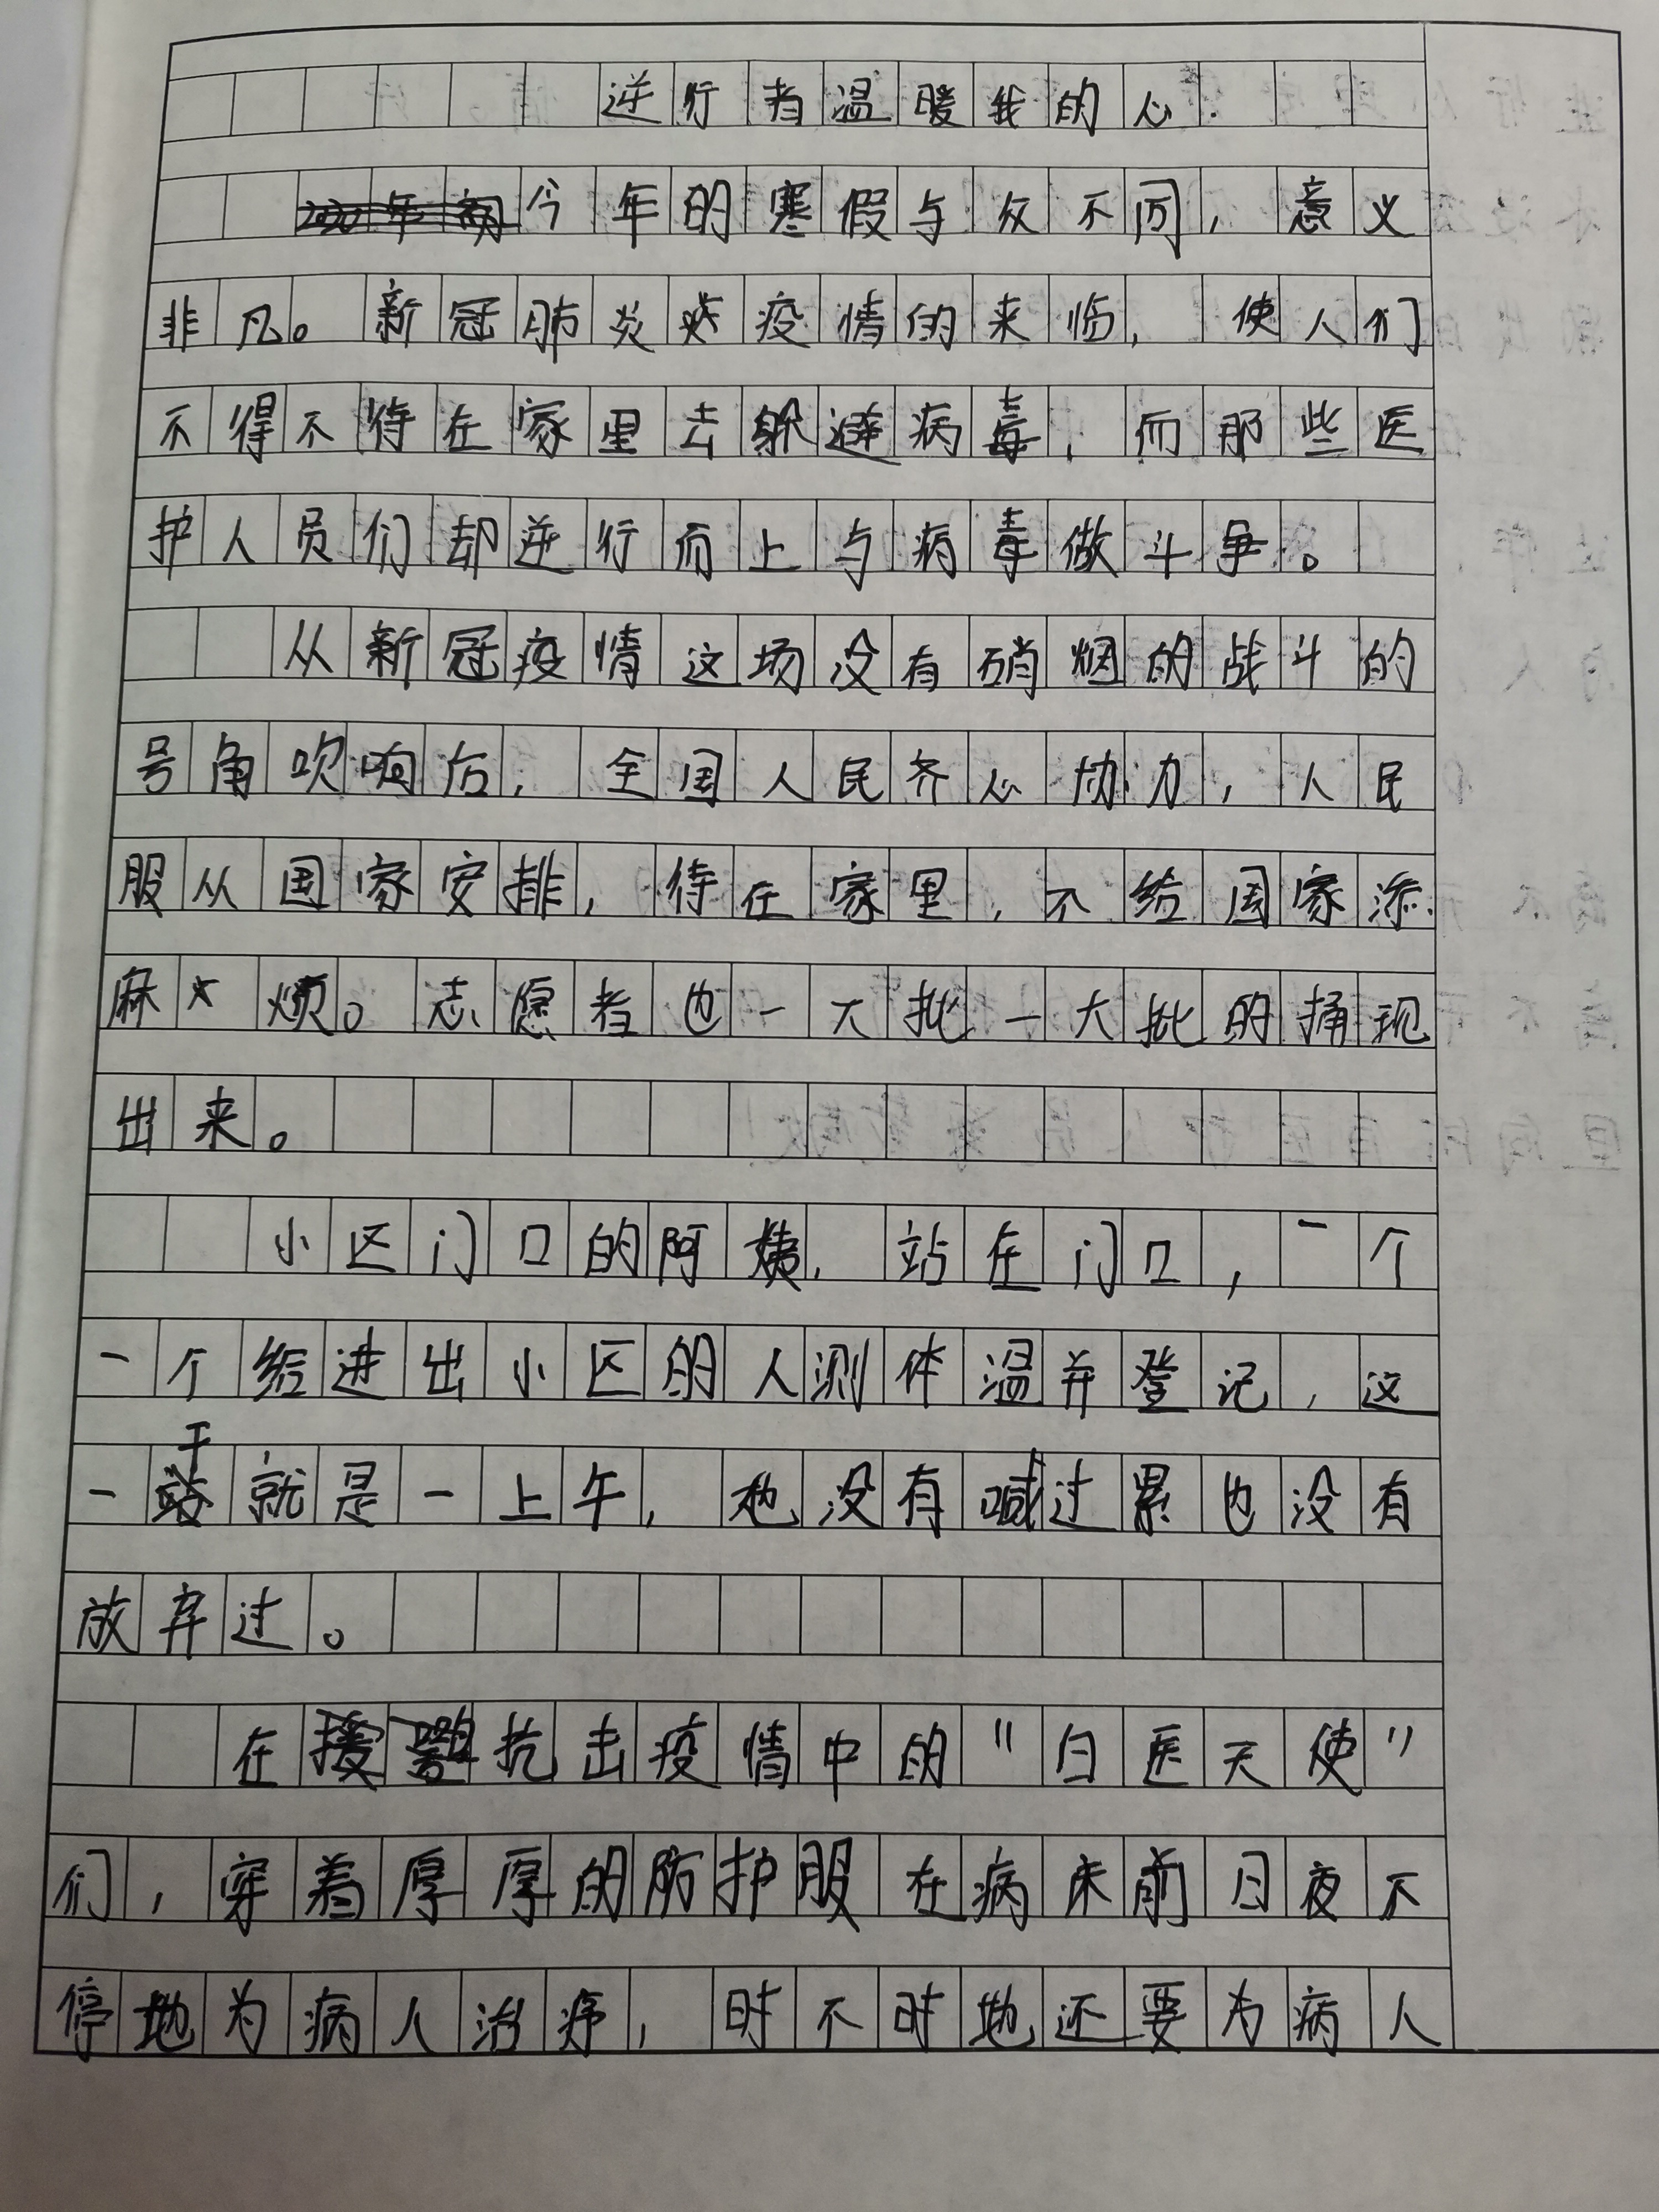 逆行者温暖我的心.
今年的寒假与众不同，意义
非凡。新冠肺炎疫情的来临，使人们
不得不待在家里去躲避病毒，而那些医
护人员们却逆行而上与病毒做斗争。
从新冠疫情这场没有硝烟的战斗的
号角吹响后，全国人民齐心协力，人民
服从国家安排，待在家里，不给国家添
麻烦。志愿者也一大批一大批的捅现
出来。
小区门口的阿姨，站在门口，一个
一个给进出小区的人测体温并登记，这
一干就是一上午，她没有喊过累也没有
放弃过。
在抗击疫情中的“白医天使”
们，穿着厚厚的防护服在病床前日夜不
停地为病人治疗，时不时地还要为病人